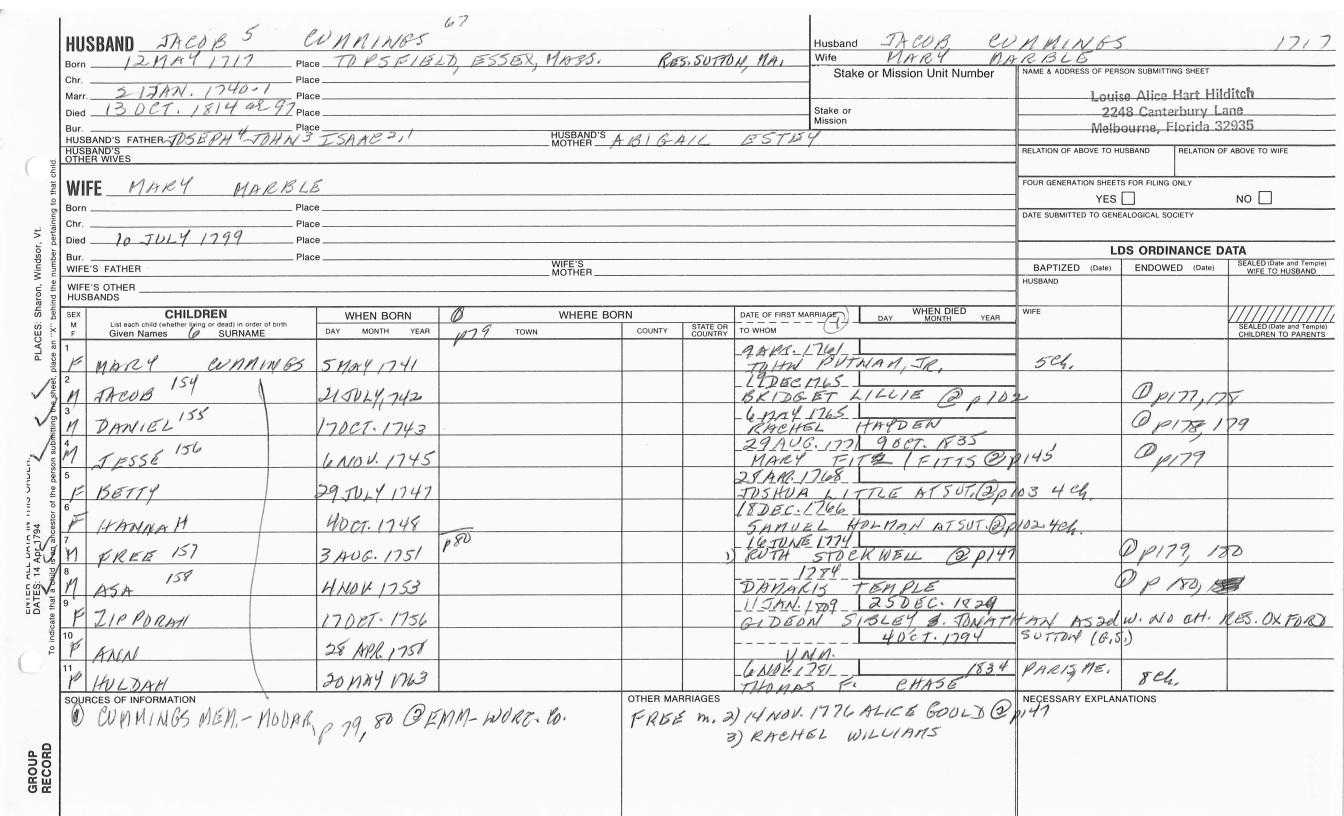 67
HUSBAND JACOB 5 CUMMINGS
Born 12 MAY 1717 Place TOPSFIELD, ESSEX, MASS. RES. SUTTON, MA.
Chr. Place
Marr. 21 JAN. 1740-1 Place
Died 13 OCT. 1814 ae 97 Place
Bur. Place
HUSBAND'S FATHER JOSEPH 4 JOHN 3 ISAAC 2,1 HUSBAND'S MOTHER ABIGAIL ESTEY
HUSBAND'S OTHER WIVES
WIFE MARY MARBLE
Born Place
Chr. Place
Died 10 JULY 1799 Place
Bur. Place
WIFE'S FATHER WIFE'S MOTHER
WIFE'S OTHER HUSBANDS
Husband JACOB CUMMINGS 1717
Wife MARY MARBLE
Stake or Mission Unit Number
Stake or Mission
NAME & ADDRESS OF PERSON SUBMITTING SHEET
Louise Alice Hart Hilditch
2248 Canterbury Lane
Melbourne, Florida 32935
RELATION OF ABOVE TO HUSBAND RELATION OF ABOVE TO WIFE
FOUR GENERATION SHEETS FOR FILING ONLY
YES NO
DATE SUBMITTED TO GENEALOGICAL SOCIETY
LDS ORDINANCE DATA
BAPTIZED (Date) ENDOWED (Date) SEALED (Date and Temple) WIFE TO HUSBAND
HUSBAND
WIFE
SEALED (Date and Temple) CHILDREN TO PARENTS
SEX M F CHILDREN WHEN BORN 1 WHERE BORN DATE OF FIRST MARRIAGE 1 WHEN DIED
List each child (whether living or dead) in order of birth
Given Names 6 SURNAME DAY MONTH YEAR p79 TOWN COUNTY STATE OR COUNTRY TO WHOM DAY MONTH YEAR
1 F MARY CUMMINGS 5 MAY 1741 9 APR. 1761
JOHN PUTNAM, JR. 5 Ch.
2 M JACOB 154 21 JULY, 1742 19 DEC 1765
BRIDGET LILLIE 2 p102 1 p177, 178
3 M DANIEL 155 17 OCT. 1743 6 MAY 1765
RACHEL HAYDEN 1 p178, 179
4 M JESSE 156 6 NOV. 1745 29 AUG. 1771 9 OCT. 1835
MARY FITZ / FITTS 2 p145 1 p179
5 F BETTY 29 JULY 1747 28 APR. 1768
JOSHUA LITTLE AT SUT. 2 p103 4 Ch.
6 F HANNAH 4 OCT. 1748 18 DEC. 1766
SAMUEL HOLMAN AT SUT. 2 p102 4 ch.
7 M FREE 157 3 AUG. 1751 p80 16 JUNE 1774
1) RUTH STOCKWELL 2 p147 1 p179, 180
8 M ASA 158 4 NOV. 1753 1784
DAMARIS TEMPLE 1 p 180,
9 F ZIPPORAH 17 OCT. 1756 11 JAN. 1809 25 DEC. 1829
GIDEON SIBLEY S. JONATHAN AS 2d W. NO CH. RES. OXFORD
10 F ANN 28 APR. 1758 4 OCT. 1794 SUTTON (G.S.)
UNM.
11 F HULDAH 20 MAY 1763 6 NOV. 1781 1834 PARIS, ME.
THOMAS F. CHASE 8 Ch.
SOURCES OF INFORMATION
1 CUMMINGS MEM.- MOOAR, p 79, 80 2 EMM-WORC. Co.
OTHER MARRIAGES
FREE m. 2) 14 NOV. 1776 ALICE GOULD 2 p147
3) RACHEL WILLIAMS
NECESSARY EXPLANATIONS
ENTER ALL DATA IN THIS ORDER:
DATES: 14 Apr 1794 PLACES: Sharon, Windsor, Vt.
To indicate that a child is an ancestor of the person submitting the sheet, place an "X" behind the number pertaining to that child.
GROUP RECORD